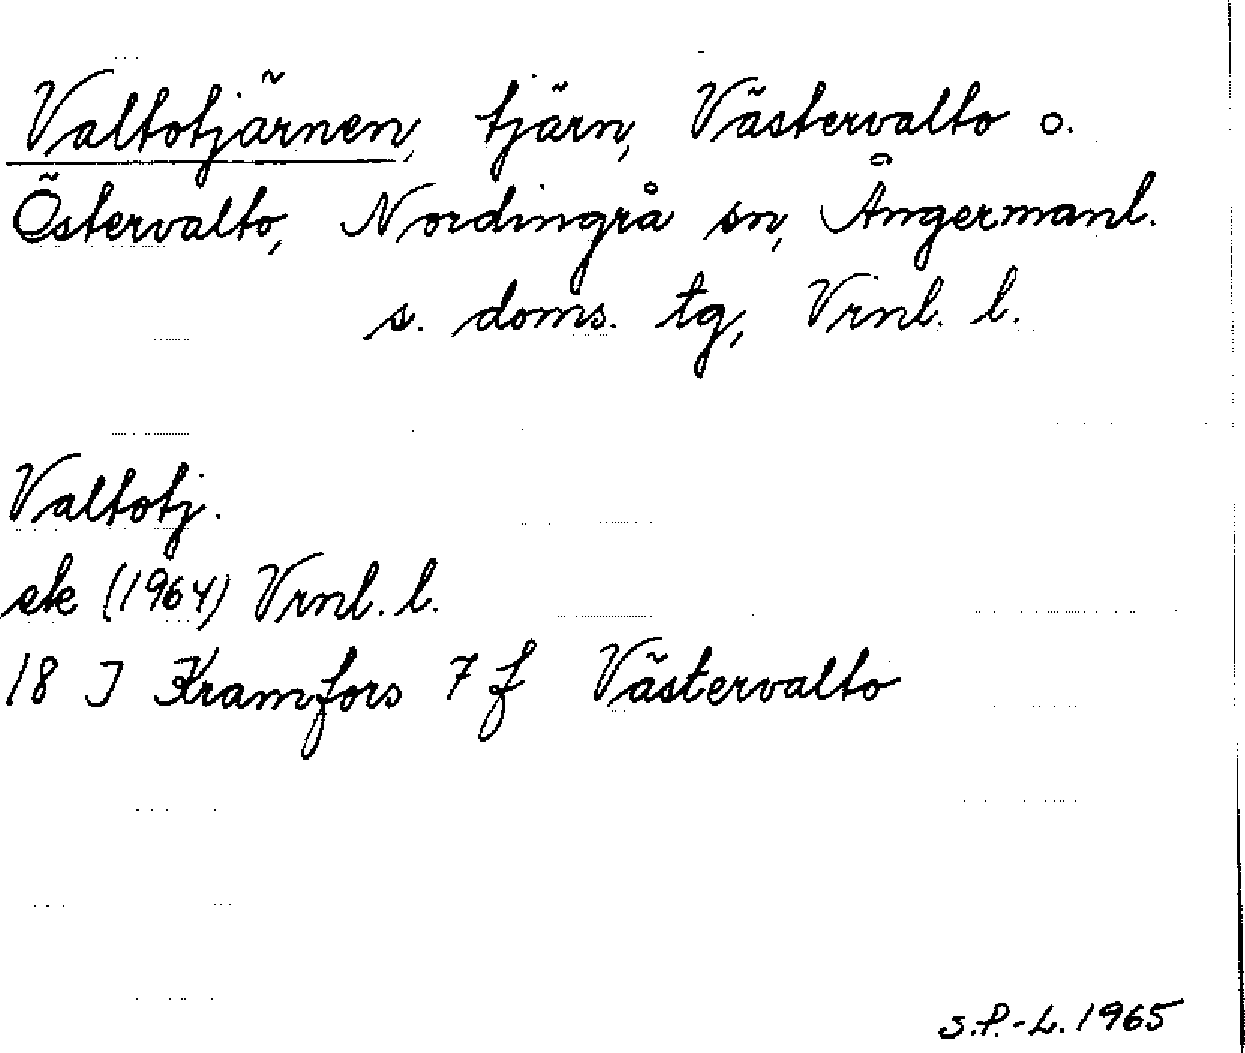 Valtotjärnen, tjärn, Västervalto o.
Östervalto, Nordingrå sn, Ångermanl.
s. doms. tg, Vrnl. l.
Valtotj.
ek (1964) Vrnl. l.
18 I Kramfors 7 f Västervalto
S.P.-L. 1965